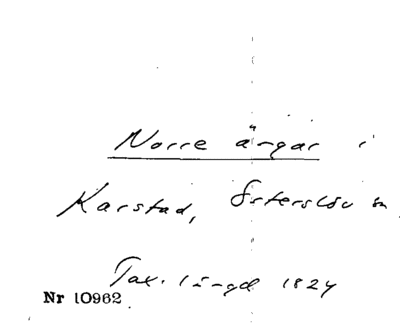 Norre ängar i
Karstad, Österslöv sn
Tax. längd 1824
Nr 10962